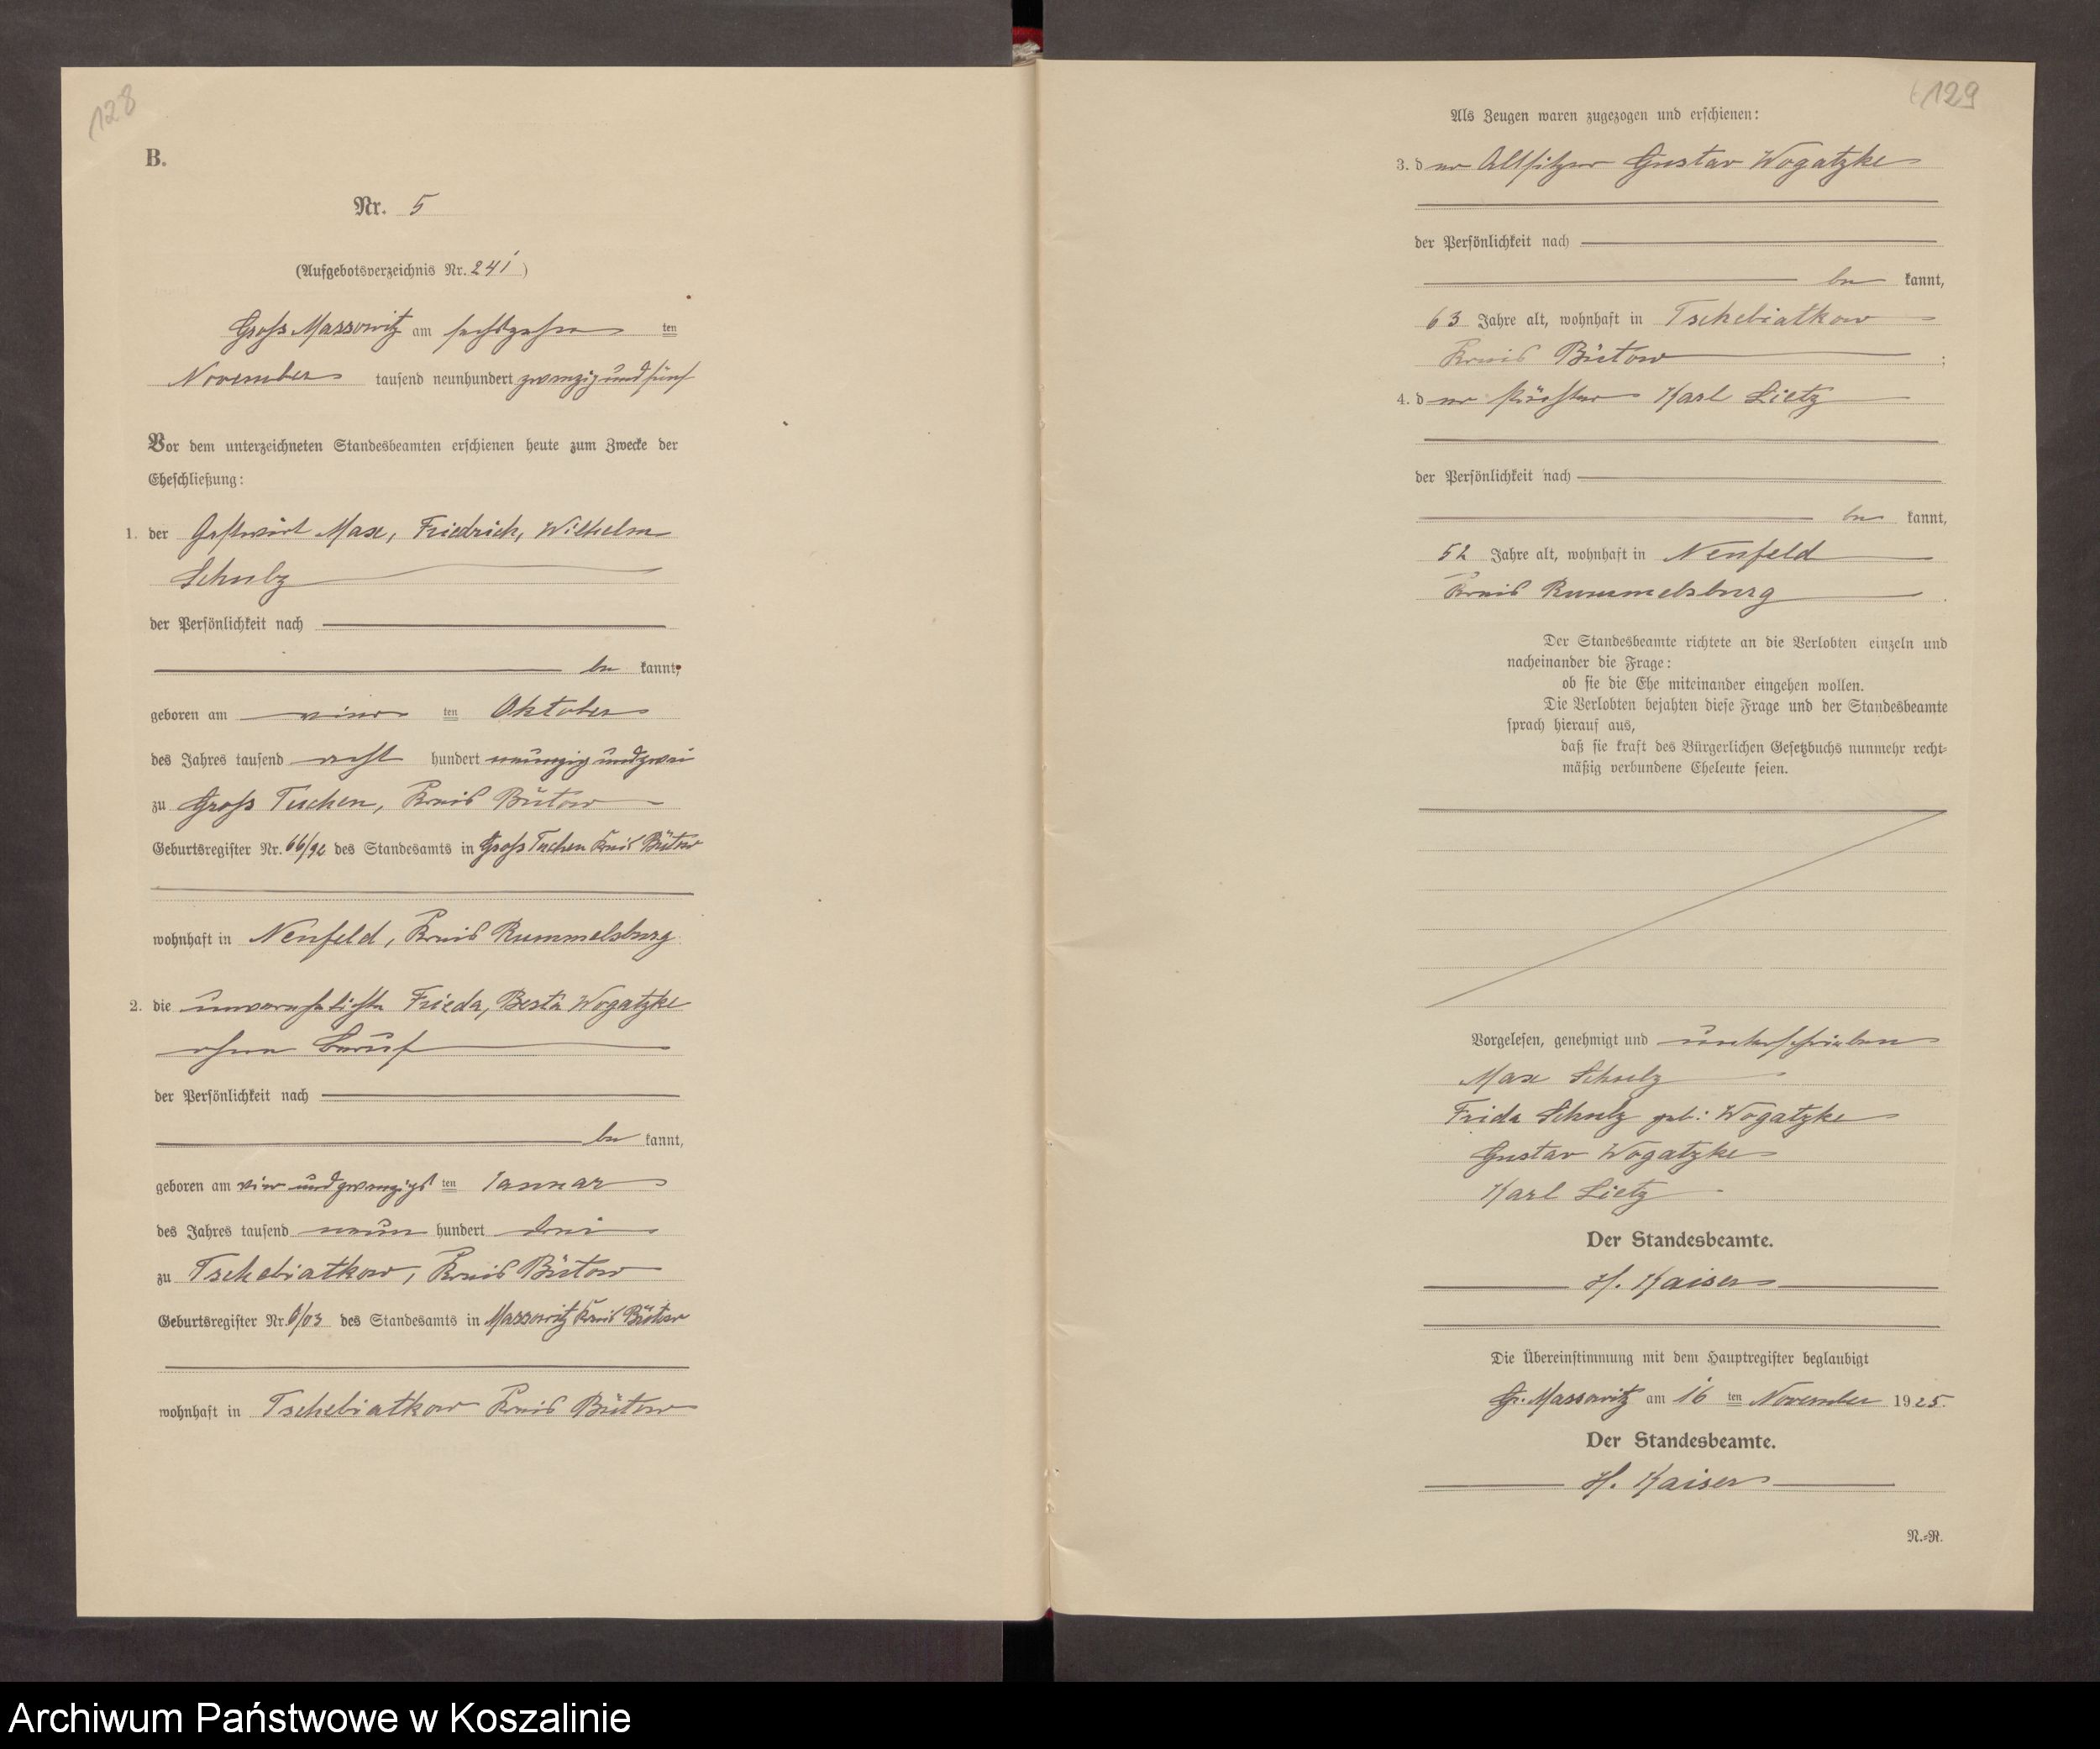 128
B.
Nr. 5
(Aufgebotsverzeichnis Nr. 241)
Groß Massowitz am sechszehn ten
November tausend neunhundert zwanzig und fünf
Vor dem unterzeichneten Standesbeamten erschienen heute zum Zwecke der
Eheschließung:
1. der Gastwirt Max, Friedrich, Wilhelm
Schulz
der Persönlichkeit nach
be kannt,
geboren am vier ten Oktober
des Jahres tausend acht hundert neunzig und zwei
zu Groß Tuchen, Kreis Bütow
Geburtsregister Nr. 66/92 des Standesamts in Groß Tuchen Kreis Bütow
wohnhaft in Neufeld, Kreis Rummelsburg
2. die unverehelichte Frieda, Berta Wogatzke
ohne Beruf
der Persönlichkeit nach
be kannt,
geboren am vier und zwanzigs ten Januar
des Jahres tausend neun hundert drei
zu Tschebiatkow, Kreis Bütow
Geburtsregister Nr. /03 des Standesamts in Massowitz Kreis Bütow
wohnhaft in Tschebiatkow Kreis Bütow
129
Als Zeugen waren zugezogen und erschienen:
3. d er Altsitzer Gustav Wogatzke
der Persönlichkeit nach
be kannt,
63 Jahre alt, wohnhaft in Tschebiatkow
Kreis Bütow ;
4. d er Karl Lietz
der Persönlichkeit nach
be kannt,
52 Jahre alt, wohnhaft in Neufeld
Kreis Rummelsburg .
Der Standesbeamte richtete an die Verlobten einzeln und
nacheinander die Frage:
ob sie die Ehe miteinander eingehen wollen.
Die Verlobten bejahten diese Frage und der Standesbeamte
sprach hierauf aus,
daß sie kraft des Bürgerlichen Gesetzbuchs nunmehr recht-
mäßig verbundene Eheleute seien.
Vorgelesen, genehmigt und unterschrieben
Max Schulz
Frida Schulz geb: Wogatzke
Gustav Wogatzke
Karl Lietz
Der Standesbeamte.
H. Kaiser
Die Übereinstimmung mit dem Hauptregister beglaubigt
Gr. Massowitz am 16 ten November 1925.
Der Standesbeamte.
H. Kaiser
N.-R.
Archiwum Państwowe w Koszalinie